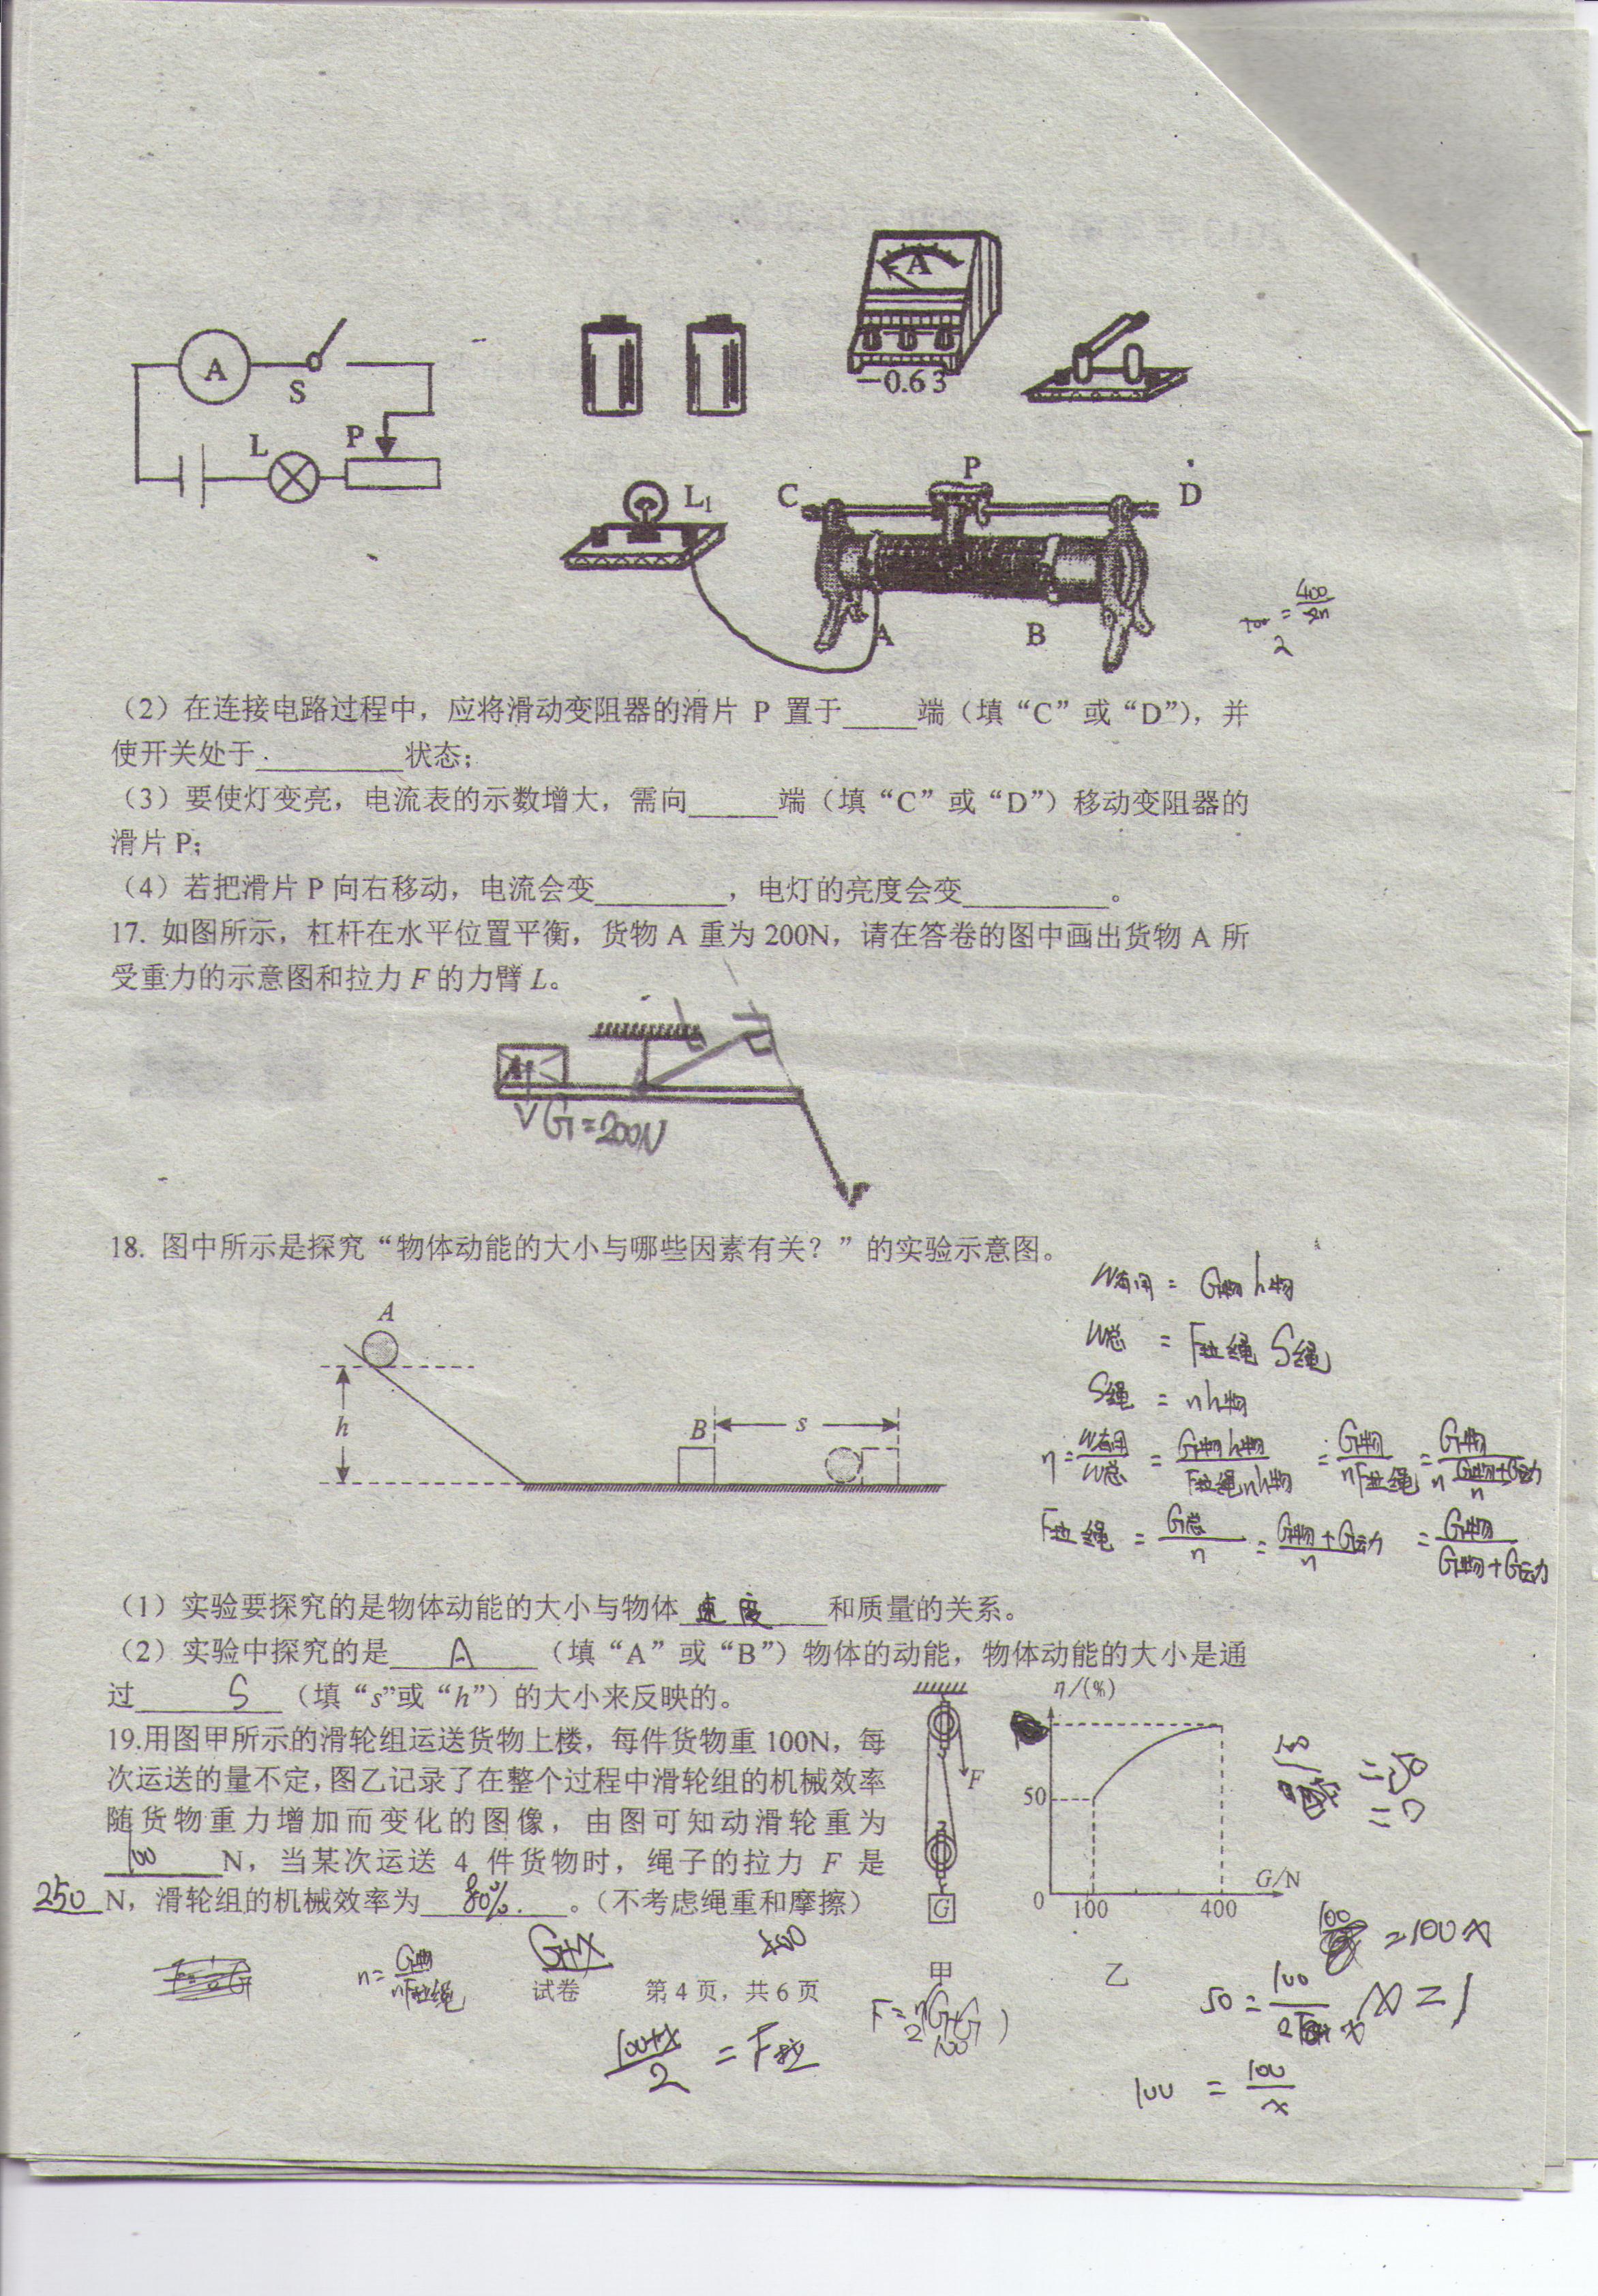 A
S
L
P
A
-0.6 3
L1
C
P
D
A
B
（2）在连接电路过程中，应将滑动变阻器的滑片 P 置于_____端（填“C”或“D”），并
使开关处于__________状态；
（3）要使灯变亮，电流表的示数增大，需向______端（填“C”或“D”）移动变阻器的
滑片 P；
（4）若把滑片 P 向右移动，电流会变_________，电灯的亮度会变__________。
17. 如图所示，杠杆在水平位置平衡，货物 A 重为 200N，请在答卷的图中画出货物 A 所
受重力的示意图和拉力 F 的力臂 L。
A
G=200N
F
18. 图中所示是探究“物体动能的大小与哪些因素有关？”的实验示意图。
A
h
B
s
W有用 = G物h物
W总 = F拉绳 S绳
S绳 = nh物
η = W有用/W总 = G物h物/F拉绳nh物 = G物/nF拉绳 = G物/n G物+G动/n
F拉绳 = G总/n = G物+G动/n = G物/G物+G动
（1）实验要探究的是物体动能的大小与物体 速度 和质量的关系。
（2）实验中探究的是 A （填“A”或“B”）物体的动能，物体动能的大小是通
过 S （填“s”或“h”）的大小来反映的。
19.用图甲所示的滑轮组运送货物上楼，每件货物重 100N，每
次运送的量不定，图乙记录了在整个过程中滑轮组的机械效率
随货物重力增加而变化的图像，由图可知动滑轮重为
100 N，当某次运送 4 件货物时，绳子的拉力 F 是
250 N，滑轮组的机械效率为 80%. 。（不考虑绳重和摩擦）
F
G
甲
η/(%)
50
0
100
400
G/N
乙
=50
=100x
n= G物/nF拉绳
G+x
400
100+x/2 = F拉
x=1
100 = 100/x
试卷 第 4 页，共 6 页